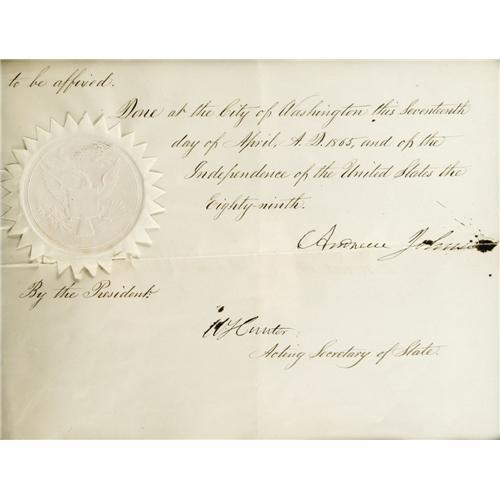 to be affixed.
Done at the City of Washington this Seventeenth
day of April, A. D. 1865, and of the
Independence of the United States the
Eighty-ninth.
Andrew Johnson
By the President:
W Hunter
Acting Secretary of State.